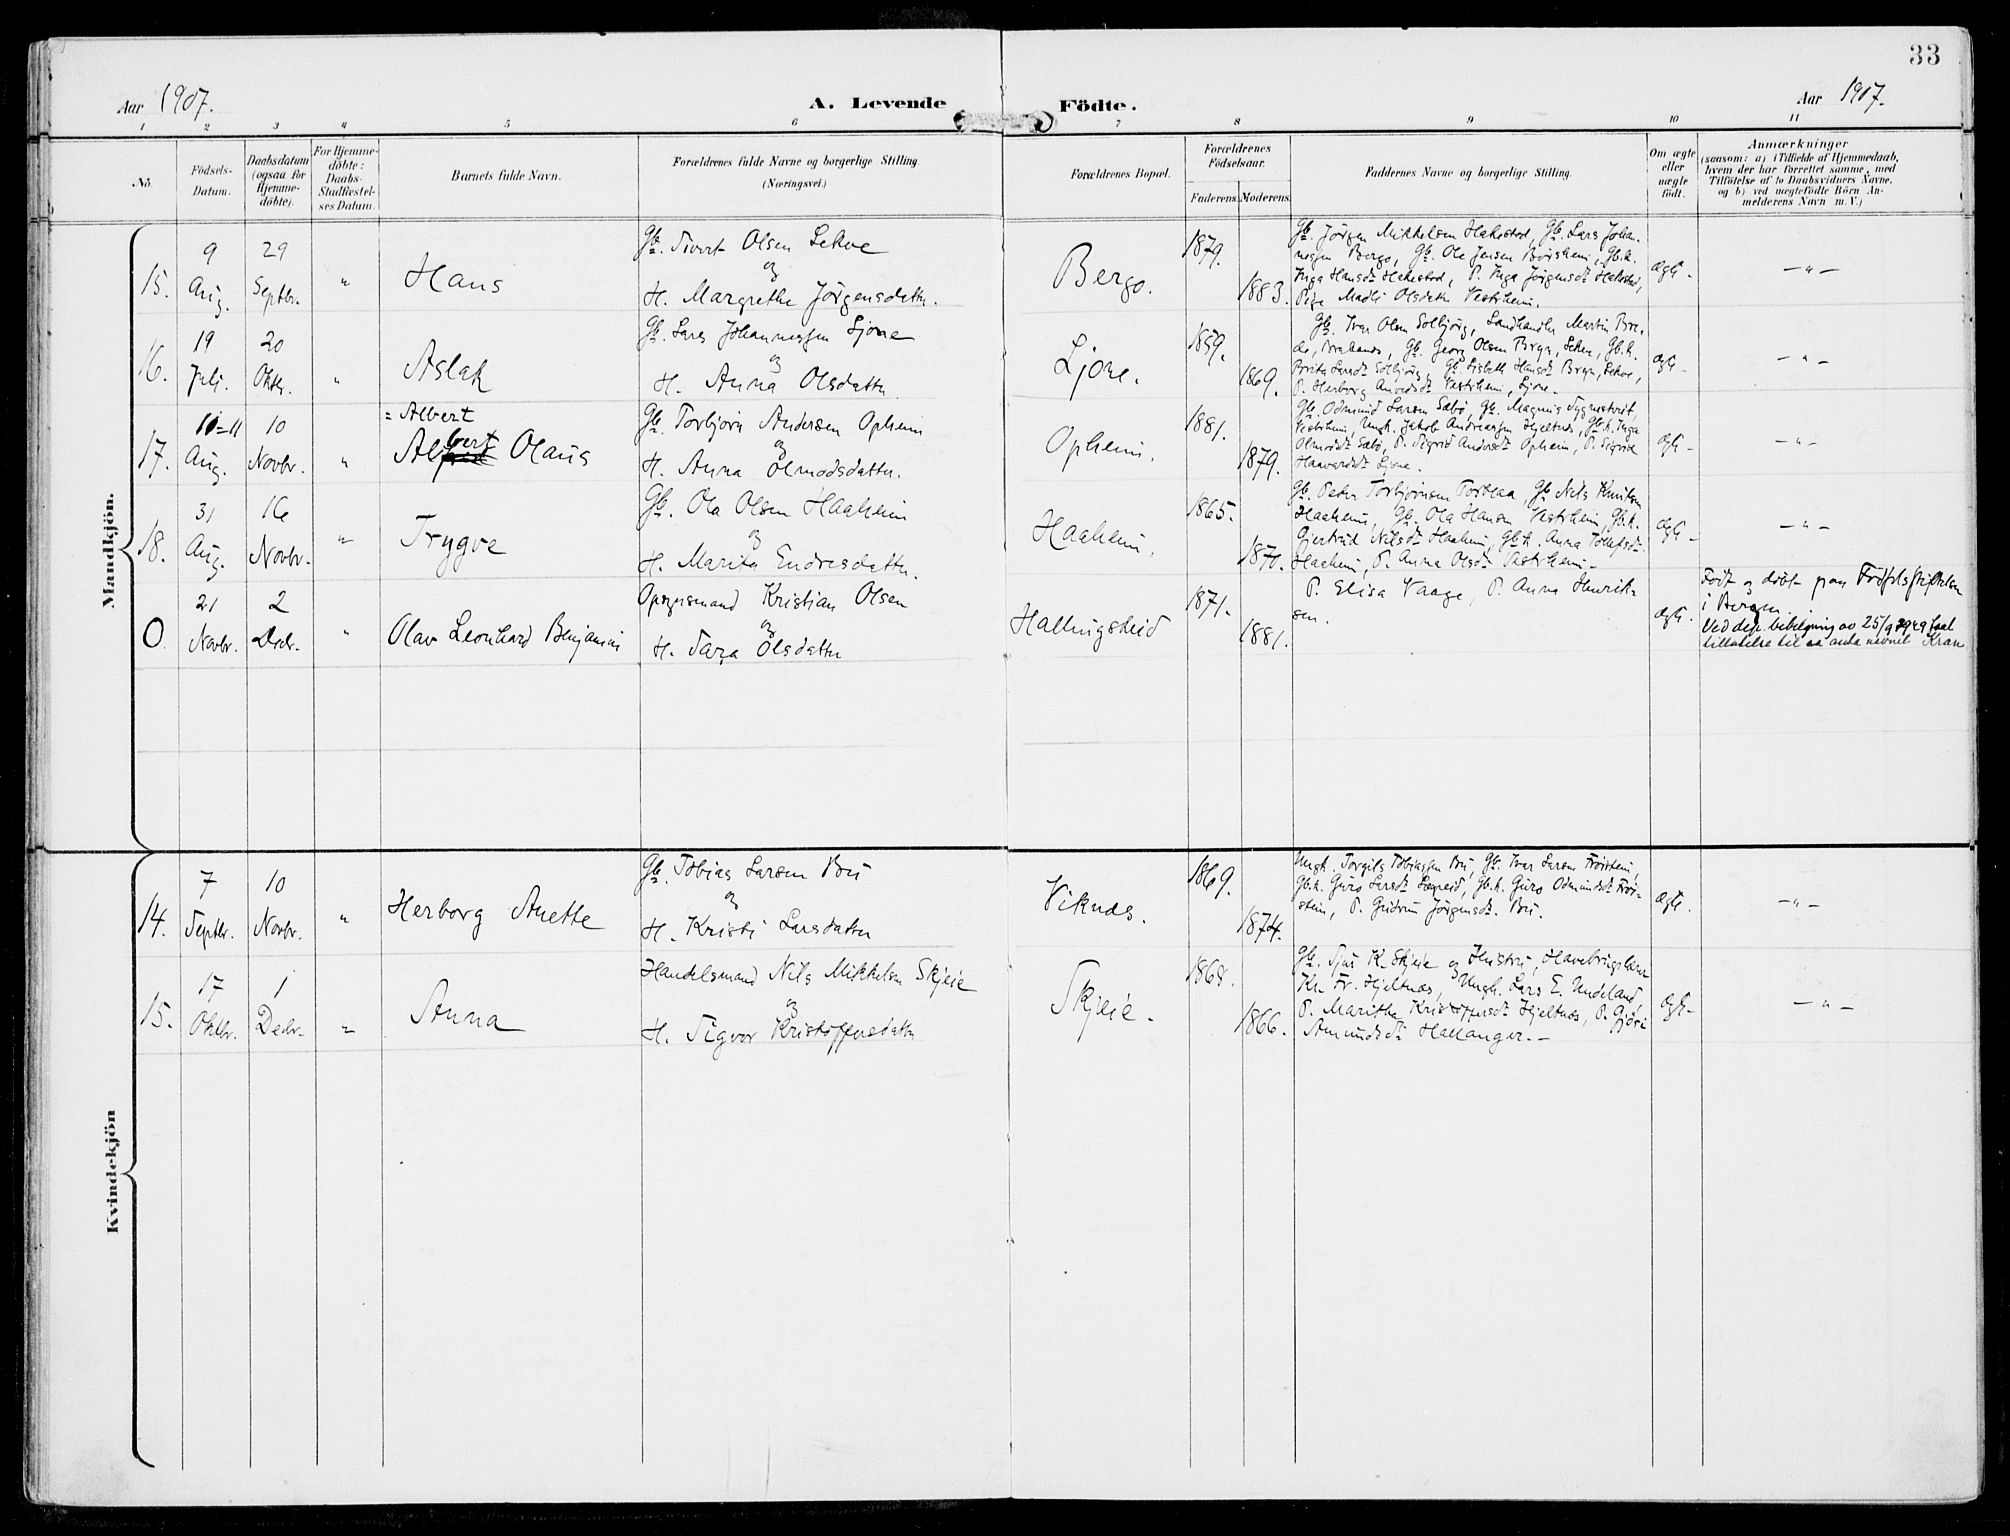 33
Aar 1907.
A. Levende Födte.
Aar 1907.
1 2 3 4 5 6 7 8 9 10 11
No.
Födsels-
Datum.
Daabsdatum
(ogsaa for
Hjemme-
döbte).
For Hjemme-
döbte:
Daabs-
Stadfæstel-
ses Datum.
Barnets fulde Navn.
Forældrenes fulde Navne og borgerlige Stilling.
(Næringsvei.)
Forældrenes Bopæl.
Forældrenes
Födselsaar.
Faderens. Moderens.
Faddernes Navne og borgerlige Stilling.
Om ægte
eller
uægte
födt.
Anmærkninger
(saasom: a) i Tilfælde af Hjemmedaab,
hvem der har forrettet samme, med
Tilföielse af to Daabsvidners Navne,
og b) ved uægtefödte Börn An-
melderens Navn m. V.)
Mandkjön.
15.
9
Aug.
29
Septbr.
"
Hans
Gb. Sivert Olsen Lekve
og
H. Margrethe Jörgensdatter.
Bergo.
1879.
1883.
Gb. Jörgen Mikkelsen Hakestad, Gb. Lars Johan-
nessen Bergo, Gb. Ole Jensen Börsheim, Gb.k.
Inga Hansdt Hakestad, P. Inga Jörgensdt Hakestad,
Pige Madli Olsdatter Vestrheim.
ægte -
- " -
16.
19
Juli.
20
Oktbr.
"
Aslak
Gb. Lars Johannessen Ljone
og
H. Anna Olsdatter
Ljone.
1859.
1869.
Gb. Ivar Olsen Solbjörg, Landhandler Martin Bre-
Gb. Georg Olsen Bryn, Lekve, Gb.k.
Brita Larsdt Solbjörg, Gb. Lisbeth Hansdt Bryn, Lekve,
P. Herborg Vestrheim, Ljone.
ægte -
- " -
17.
10-11
Aug.
10
Novbr.
"
= Albert
Albert Olaus
Gb. Torbjörn Andersen Opheim
og
H. Anna Olmodsdatter.
Opheim.
1881.
1879.
Gb. Odmund Larsen Sæbö, Gb. Magnus
Vestrheim, Ungk. Jakob Andreassen Hjeltnes, Gb.k. Inga
Olmodsdt Sæbö, P. Sigrid Andersdt Opheim, P. Sigrid
Haavardsdt Ljone.
ægte -
- " -
18.
31
Aug.
16
Novbr.
"
Trygve
Gb. Ola Olsen Haaheim
og
H. Marita Endresdatter.
Haaheim.
1865.
1870.
Gb. Peter Torbjörnsen Torblaa, Gb. Nils Knutsen
Haaheim, Gb. Ola Hansen Vestrheim, Gb.k.
Gjertrud Nilsdt Haaheim, Gb.k. Anna Tollefsdt
Haaheim, P. Anna Olsdt Vestrheim. -
ægte -
- " -
0.
21
Novbr.
2
Decbr.
"
Olav Leonhard Benjamin
Opsynsmand Kristian Olsen
og
H. Sara Olsdatter
Hallingskeid
1871.
1881.
P. Elisa Vaage, P. Anna Henrik-
sen.
ægte.
Födt og döbt paa Födselsstiftelsen
i Bergen.
Ved dep. bevilgning av 25/9 1949 faat
tillatelse til aa anta navnet Kran
Kvindekjön
14.
7
Septbr.
10
Novbr.
"
Herborg Anette
Gb. Tobias Larsen Bu
og
H. Kristi Larsdatter
Viknes.
1869.
1874.
Ungk. Torgils Tobiassen Bu, Gb. Ivar Larsen Fröistein,
Gb.k. Guro Larsdt Lægreid, Gb.k. Guro Odmundsdt Fröi-
stein, P. Gudrun Jörgensdt. Bu.
ægte.
- " -
15.
17
Oktbr.
1
Decbr.
"
Anna
Handelsmand Nils Mikkelsen Skjeie
og
H. Sigvor Kristoffersdatter
Skjeie.
1868.
1866.
Gb. Sjur K. Skjeie og Hustru, Havebrugslærer
Kr. Fr. Hjeltnes, Ungk. Lars E. Undeland,
P. Maritha Kristoffersdt Hjeltnes, P. Gjöri
Amundsdt Hallanger. -
ægte -
- " -